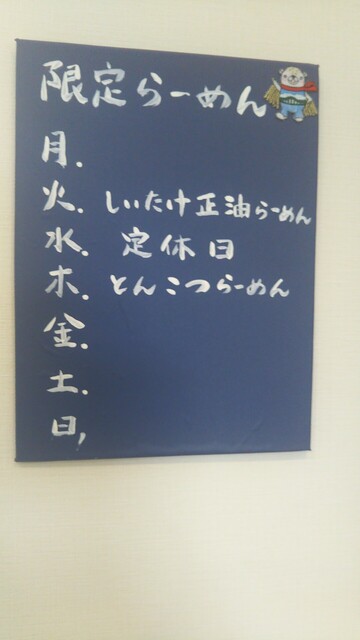 限定らーめん
月.
火. しいたけ正油らーめん
水. 定休日
木. とんこつらーめん
金.
土.
日,